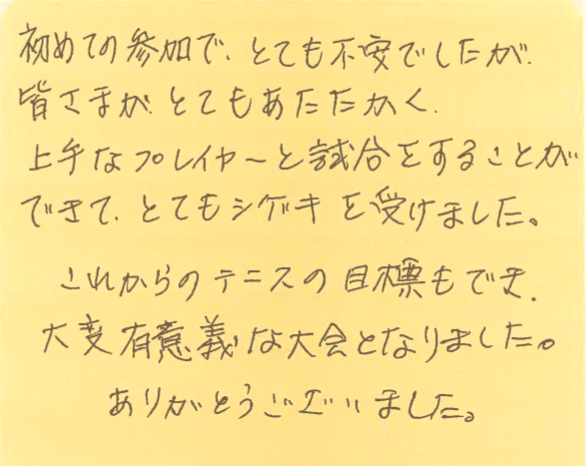 初めての参加で、とても不安でしたが、
皆さまが、とてもあたたかく、
上手なプレイヤーと試合をすることが
できて、とてもシゲキを受けました。
これからのテニスの目標もでき、
大変有意義な大会となりました。
ありがとうございました。